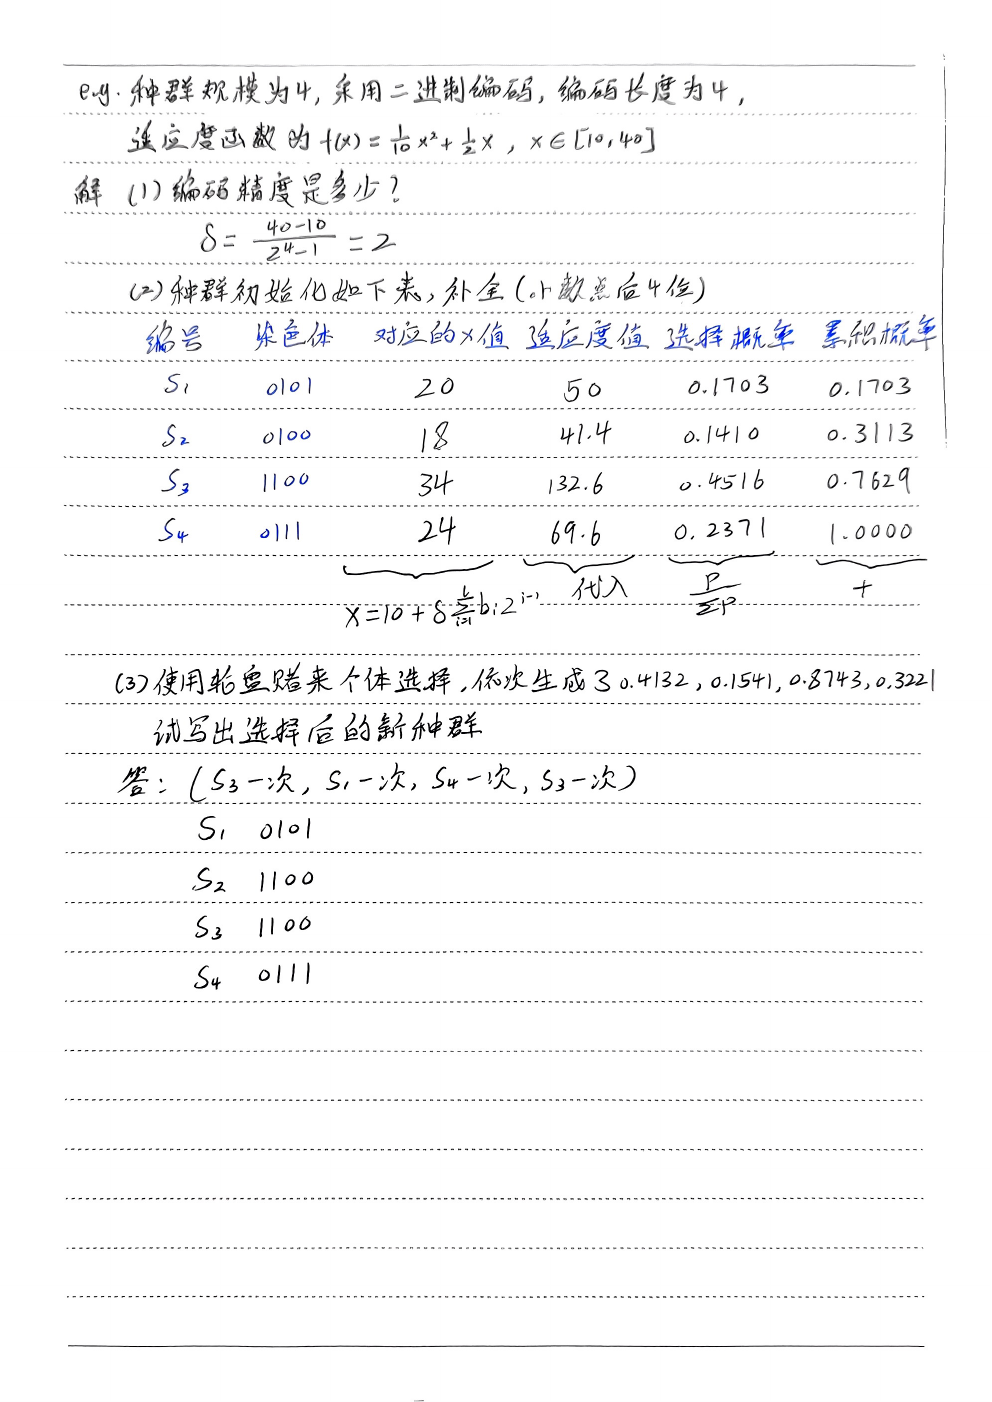 e.g. 种群规模为4, 采用二进制编码, 编码长度为4,
适应度函数为 f(x) = 1/10 x² + 1/2 x , x ∈ [10, 40]
解 (1) 编码精度是多少?
δ = (40-10)/(2⁴-1) = 2
(2) 种群初始化如下表, 补全 (小数点后4位)
编号 染色体 对应的x值 适应度值 选择概率 累积概率
S₁ 0101 20 50 0.1703 0.1703
S₂ 0100 18 41.4 0.1410 0.3113
S₃ 1100 34 132.6 0.4516 0.7629
S₄ 0111 24 69.6 0.2371 1.0000
x = 10 + δ Σ bᵢ 2^(i-1) 代入 P/ΣP +
(3) 使用轮盘赌来个体选择, 依次生成了 0.4132, 0.1541, 0.8743, 0.3221
试写出选择后的新种群
答: (S₃一次, S₁一次, S₄一次, S₃一次)
S₁ 0101
S₂ 1100
S₃ 1100
S₄ 0111